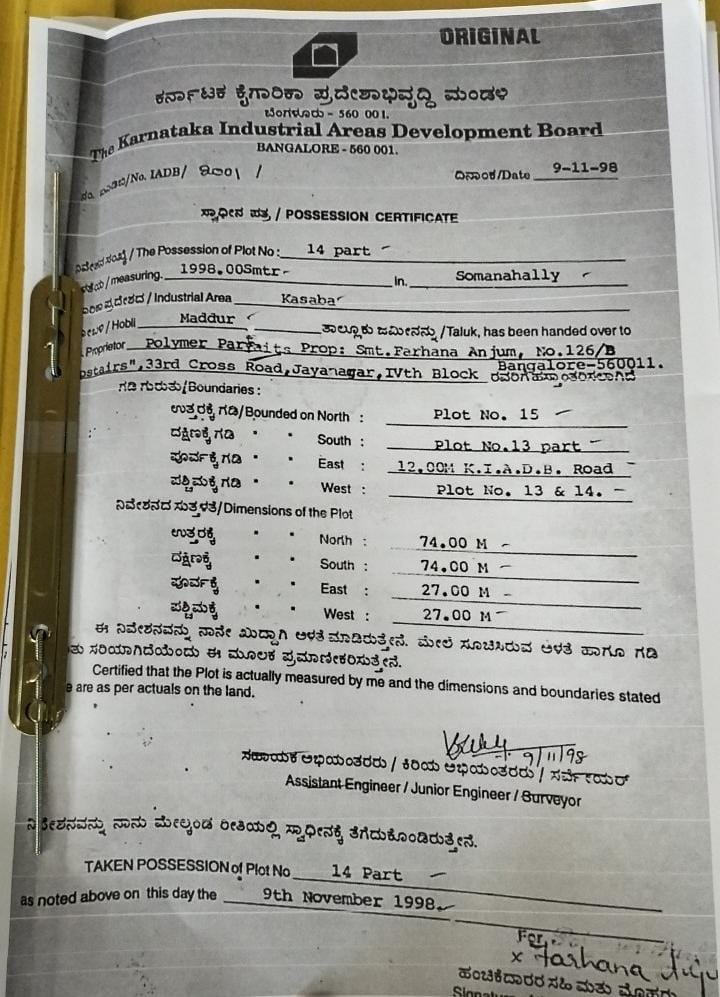 ORIGINAL
ಕರ್ನಾಟಕ ಕೈಗಾರಿಕಾ ಪ್ರದೇಶಾಭಿವೃದ್ಧಿ ಮಂಡಳಿ
ಬೆಂಗಳೂರು - 560 001.
The Karnataka Industrial Areas Development Board
BANGALORE - 560 001.
/No. IADB/ /
ದಿನಾಂಕ/Date 9-11-98
ಸ್ವಾಧೀನ ಪತ್ರ / POSSESSION CERTIFICATE
ನಿವೇಶನ ಸಂಖ್ಯೆ / The Possession of Plot No : 14 part
/ measuring. 1998.00Smtr- In. Somanahally
ಪ್ರದೇಶದ / Industrial Area Kasaba
/ Hobli Maddur ತಾಲ್ಲೂಕು ಜಮೀನನ್ನು / Taluk, has been handed over to
Proprietor Polymer Parfaits Prop: Smt.Farhana Anjum, No.126/B
pstairs",33rd Cross Road,Jayanagar,IVth Block Bangalore-560011.
ರವರಿಗೆ ಹಸ್ತಾಂತರಿಸಲಾಗಿದೆ
ಗಡಿ ಗುರುತು/Boundaries :
ಉತ್ತರಕ್ಕೆ ಗಡಿ/Bounded on North : Plot No. 15
ದಕ್ಷಿಣಕ್ಕೆ ಗಡಿ " " South : Plot No.13 part
ಪೂರ್ವಕ್ಕೆ ಗಡಿ " " East : 12.00M K.I.A.D.B. Road
ಪಶ್ಚಿಮಕ್ಕೆ ಗಡಿ " " West : Plot No. 13 & 14.
ನಿವೇಶನದ ಸುತ್ತಳತೆ/Dimensions of the Plot
ಉತ್ತರಕ್ಕೆ " " North : 74.00 M
ದಕ್ಷಿಣಕ್ಕೆ " " South : 74.00 M
ಪೂರ್ವಕ್ಕೆ " " East : 27.00 M
ಪಶ್ಚಿಮಕ್ಕೆ " " West : 27.00 M
ಈ ನಿವೇಶನವನ್ನು ನಾನೇ ಖುದ್ದಾಗಿ ಅಳತೆ ಮಾಡಿರುತ್ತೇನೆ. ಮೇಲೆ ಸೂಚಿಸಿರುವ ಅಳತೆ ಹಾಗೂ ಗಡಿ
ತು ಸರಿಯಾಗಿದೆಯೆಂದು ಈ ಮೂಲಕ ಪ್ರಮಾಣೀಕರಿಸುತ್ತೇನೆ.
Certified that the Plot is actually measured by me and the dimensions and boundaries stated
e are as per actuals on the land.
9/11/98
ಸಹಾಯಕ ಅಭಿಯಂತರರು / ಕಿರಿಯ ಅಭಿಯಂತರರು / ಸರ್ವೇಯರ್
Assistant Engineer / Junior Engineer / Surveyor
ನಿವೇಶನವನ್ನು ನಾನು ಮೇಲ್ಕಂಡ ರೀತಿಯಲ್ಲಿ ಸ್ವಾಧೀನಕ್ಕೆ ತೆಗೆದುಕೊಂಡಿರುತ್ತೇನೆ.
TAKEN POSSESSION of Plot No 14 Part
as noted above on this day the 9th November 1998.
For,
x Farhana
ಹಂಚಿಕೆದಾರರ ಸಹಿ ಮತ್ತು ಮೊಹರು